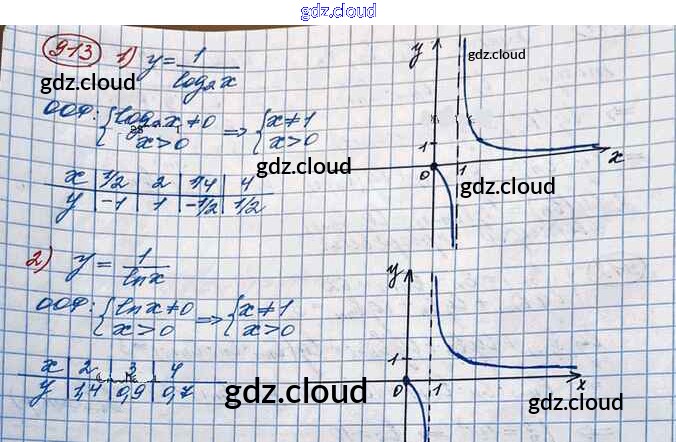 gdz.cloud
913 1) y = 1/log₂x
gdz.cloud
ООФ: { log₂x ≠ 0 => { x ≠ 1
x > 0 x > 0
gdz.cloud
x | 1/2 | 2 | 1/4 | 4
y | -1 | 1 | -1/2 | 1/2
y
gdz.cloud
1
0 1 x
gdz.cloud
2) y = 1/ln x
ООФ: { ln x ≠ 0 => { x ≠ 1
x > 0 x > 0
x | 2 | 3 | 4
y | 1,4 | 0,9 | 0,7
gdz.cloud
y
1
0 1 x
gdz.cloud